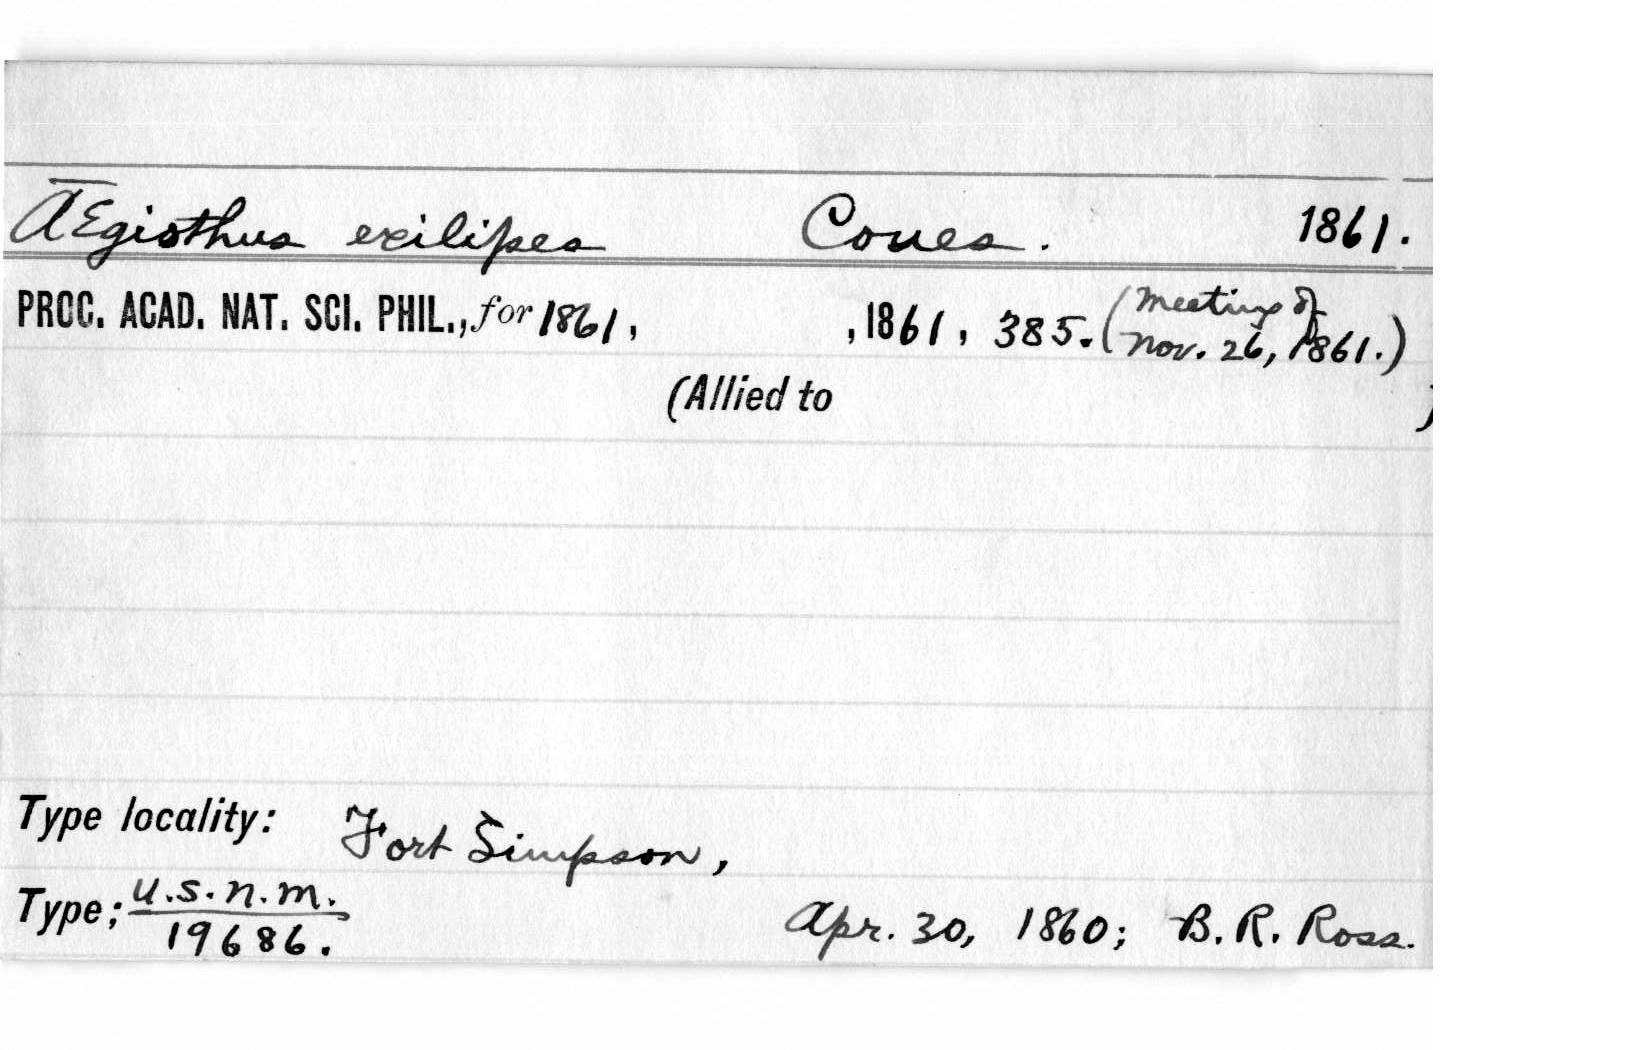 Ægiothus exilipes Coues. 1861.
PROC. ACAD. NAT. SCI. PHIL., for 1861, , 1861, 385. (Meeting of
Nov. 26, 1861.)
(Allied to )
Type locality: Fort Simpson,
Type; U.S.N.M.
19686. Apr. 30, 1860; B. R. Ross.